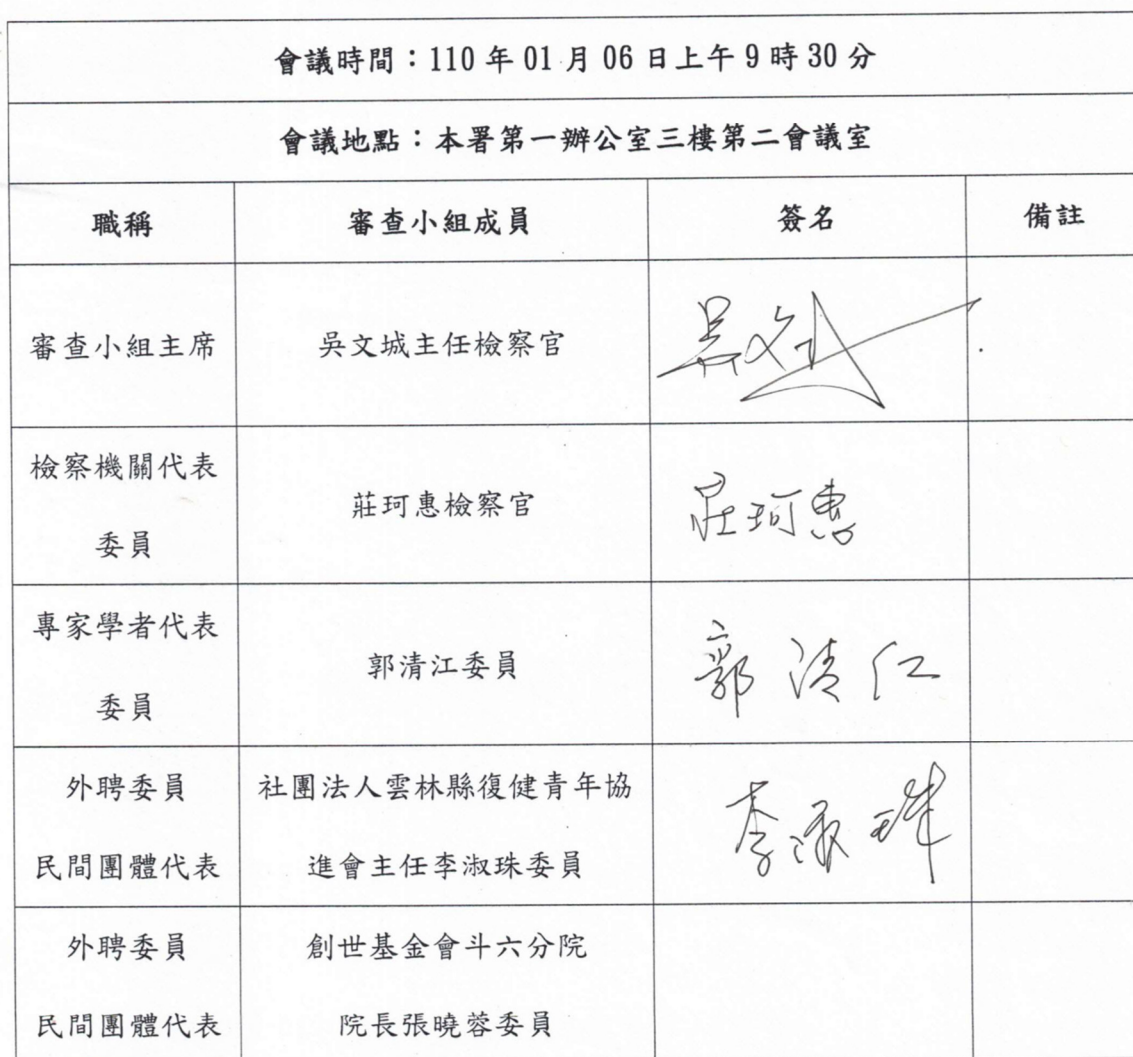 會議時間：110 年 01 月 06 日上午 9 時 30 分
會議地點：本署第一辦公室三樓第二會議室
職稱
審查小組成員
簽名
備註
審查小組主席
吳文城主任檢察官
吳文城
檢察機關代表
委員
莊珂惠檢察官
莊珂惠
專家學者代表
委員
郭清江委員
郭清江
外聘委員
民間團體代表
社團法人雲林縣復健青年協
進會主任李淑珠委員
李淑珠
外聘委員
民間團體代表
創世基金會斗六分院
院長張曉蓉委員